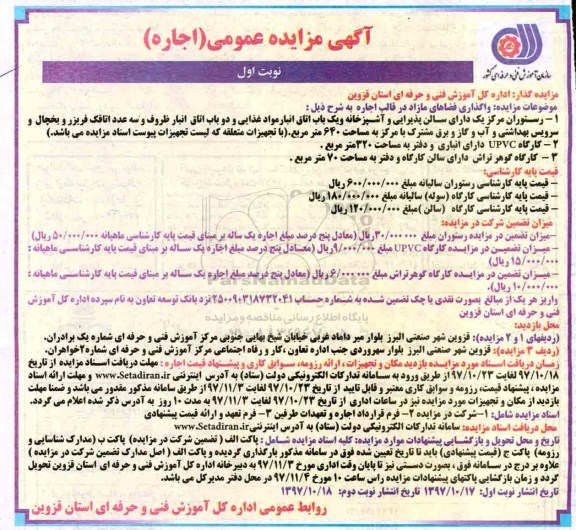 آگهی مزایده عمومی(اجاره)
نوبت اول
سازمان آموزش فنی و حرفه ای کشور
مزایده گذار: اداره کل آموزش فنی و حرفه ای استان قزوین
موضوعات مزایده: واگذاری فضاهای مازاد در قالب اجاره به شرح ذیل :
۱ – رستوران مرکز یک دارای سالن پذیرایی و آشپزخانه ویک باب اتاق انبارمواد غذایی و دو باب اتاق انبار ظروف و سه عدد اتاقک فریزر و یخچال و
سرویس بهداشتی و آب و گاز و برق مشترک با مرکز به مساحت ۶۴۰ متر مربع.(با تجهیزات متعلقه که لیست تجهیزات پیوست اسناد مزایده می باشد.)
۲ – کارگاه UPVC دارای انباری و دفتر به مساحت ۳۲۰متر مربع .
۳ – کارگاه گوهر تراش دارای سالن کارگاه و دفتر به مساحت ۷۰ متر مربع .
قیمت پایه کارشناسی:
– قیمت پایه کارشناسی رستوران سالیانه مبلغ ۶۰۰/۰۰۰/۰۰۰ ریال
– قیمت پایه کارشناسی کارگاه (سوله) سالیانه مبلغ ۱۸۰/۰۰۰/۰۰۰ ریال
– قیمت پایه کارشناسی کارگاه (سالن)مبلغ ۱۲۰/۰۰۰/۰۰۰ ریال
میزان تضمین شرکت در مزایده:
–میزان تضمین در مزایده رستوران مبلغ ۳۰/۰۰۰/۰۰۰ریال (معادل پنج درصد مبلغ اجاره یک ساله بر مبنای قیمت پایه کارشناسی ماهیانه ۵۰/۰۰۰/۰۰۰ ریال)
–میزان تضمین در مزایده کارگاه UPVC مبلغ ۹/۰۰۰/۰۰۰ریال (معادل پنج درصد مبلغ اجاره یک ساله بر مبنای قیمت پایه کارشناسی ماهیانه :
۱۵/۰۰۰/۰۰۰ ریال)
–میزان تضمین در مزایده کارگاه گوهرتراش مبلغ ۶/۰۰۰/۰۰۰ ریال (معادل پنج درصد مبلغ اجاره یک ساله بر مبنای قیمت پایه کارشناسی ماهیانه :
۱۰/۰۰۰/۰۰۰ ریال).
واریز هر یک از مبالغ بصورت نقدی یا چک تضمین شده به شماره حساب ۲۵۰۰۹۰۳۱۸۷۳۲۰۴۱ نزد بانک توسعه تعاون به نام سپرده اداره کل آموزش
فنی و حرفه ای استان قزوین
محل بازدید:
(ردیفهای ۱ و ۲ مزایده): قزوین شهر صنعتی البرز بلوار میر داماد غربی خیابان شیخ بهایی جنوبی مرکز آموزش فنی و حرفه ای شماره یک برادران.
(ردیف ۳ مزایده): قزوین شهر صنعتی البرز بلوار سهروردی جنب اداره تعاون ، کار و رفاه اجتماعی مرکز آموزش فنی و حرفه ای شماره۲خواهران.
زمان دریافت اسناد مورد مزایده بازدید مکان و تجهیزات ، ارائه رزومه، سوابق کاری و پیشنهاد قیمت اجاره : مهلت دریافت اسناد مزایده از تاریخ
۹۷/۱۰/۱۸ لغایت ۹۷/۱۰/۲۳ از طریق ورود به سامانه تدارکات الکترونیکی دولت (ستاد) به آدرس اینترنتی www.Setadiran.ir و مهلت ارائه اسناد
مزایده ، پیشنهاد قیمت، رزومه و سوابق کاری معتبر و قابل تایید از تاریخ ۹۷/۱۰/۲۳ لغایت ۹۷/۱۱/۳ از طریق سامانه مذکور مقدور می باشد و ضمنا مهلت
بازدید از مکان و تجهیزات مورد مزایده نیز در ساعات اداری از تاریخ ۹۷/۱۰/۲۳ لغایت ۹۷/۱۱/۳ به مدت ۱۰ روز به آدرس ذکر شده اعلام می گردد.
اسناد مزایده شامل: ۱–شرکت در مزایده ۲– فرم قرارداد اجاره و تعهدات طرفین ۳– فرم تعهد و ارائه قیمت پیشنهادی
محل دریافت اسناد مزایده: سامانه تدارکات الکترونیکی دولت (ستاد) به آدرس اینترنتی www.Setadiran.ir
تاریخ و محل تحویل و بازگشایی پیشنهادات موارد مزایده: کلیه اسناد مزایده شامل : پاکت الف ( تضمین شرکت در مزایده) پاکت ب (مدارک شناسایی و
رزومه) پاکت ج (قیمت پیشنهادی) باید تا تاریخ تعیین شده فوق در سامانه مذکور بارگذاری گردیده و پاکت الف ( اصل مدارک تضمین شرکت در مزایده )
علاوه بر درج در سامانه فوق ، بصورت دستی نیز تا پایان وقت اداری مورخ ۹۷/۱۱/۳ به دبیرخانه اداره کل آموزش فنی و حرفه ای استان قزوین تحویل
گردد و زمان بازگشایی پاکتهای پیشنهادات مزایده راس ساعت ۱۰ مورخ ۹۷/۱۱/۴ در محل دفتر مدیرکل می باشد.
تاریخ انتشار نوبت اول: ۱۳۹۷/۱۰/۱۷ تاریخ انتشار نوبت دوم: ۱۳۹۷/۱۰/۱۸
روابط عمومی اداره کل آموزش فنی و حرفه ای استان قزوین
ParsNamadData
پایگاه اطلاع رسانی مناقصه و مزایده